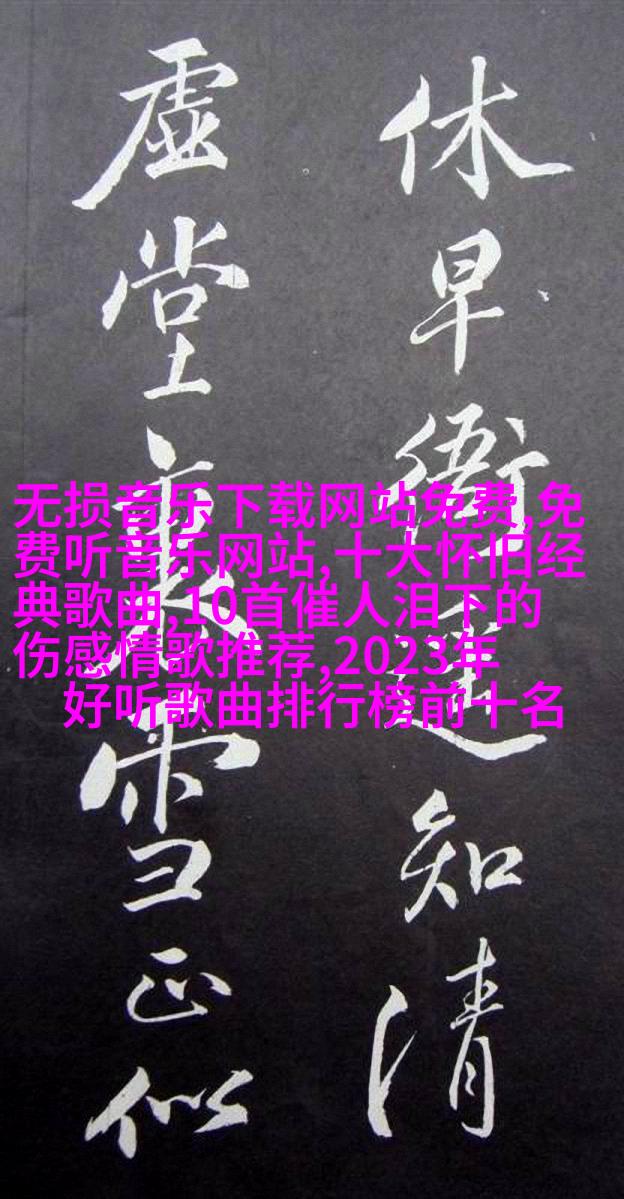 休早衙知清
虚堂雪正似
无损音乐下载网站免费,免
费听音乐网站,十大怀旧经
典歌曲,10首催人泪下的
伤感情歌推荐,2023年
好听歌曲排行榜前十名